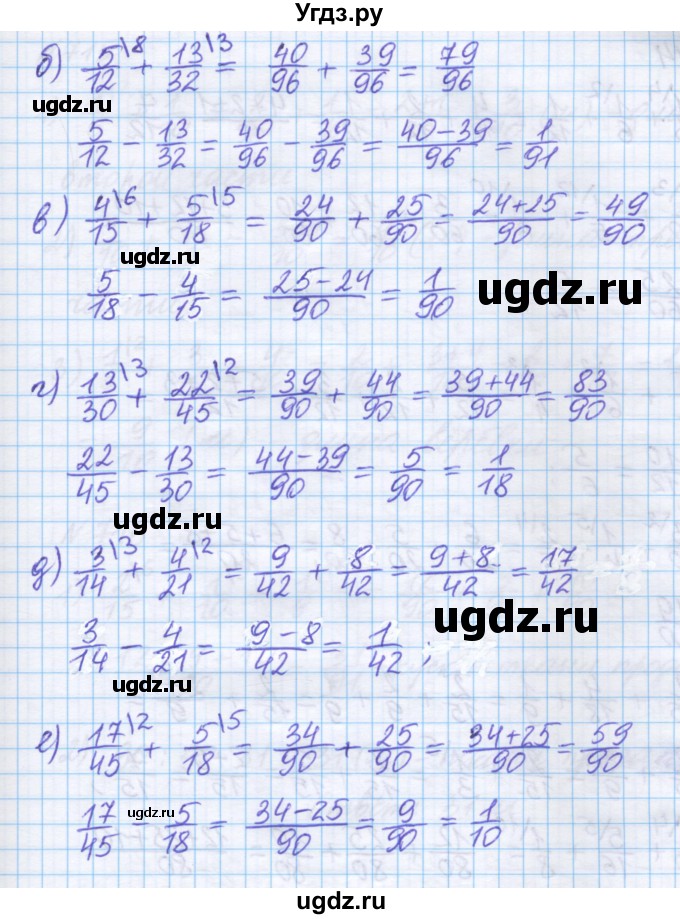 Угдз.ру
б) 5/12\8 + 13/32\3 = 40/96 + 39/96 = 79/96
ugdz.ru
5/12 − 13/32 = 40/96 − 39/96 = (40−39)/96 = 1/91
в) 4/15\6 + 5/18\5 = 24/90 + 25/90 = (24+25)/90 = 49/90
ugdz.ru
5/18 − 4/15 = (25−24)/90 = 1/90
ugdz.ru
г) 13/30\3 + 22/45\2 = 39/90 + 44/90 = (39+44)/90 = 83/90
22/45 − 13/30 = (44−39)/90 = 5/90 = 1/18
ugdz.ru
д) 3/14\3 + 4/21\2 = 9/42 + 8/42 = (9+8)/42 = 17/42
ugdz.ru
3/14 − 4/21 = (9−8)/42 = 1/42 ;
ugdz.ru
е) 17/45\2 + 5/18\5 = 34/90 + 25/90 = (34+25)/90 = 59/90
ugdz.ru
17/45 − 5/18 = (34−25)/90 = 9/90 = 1/10
ugdz.ru